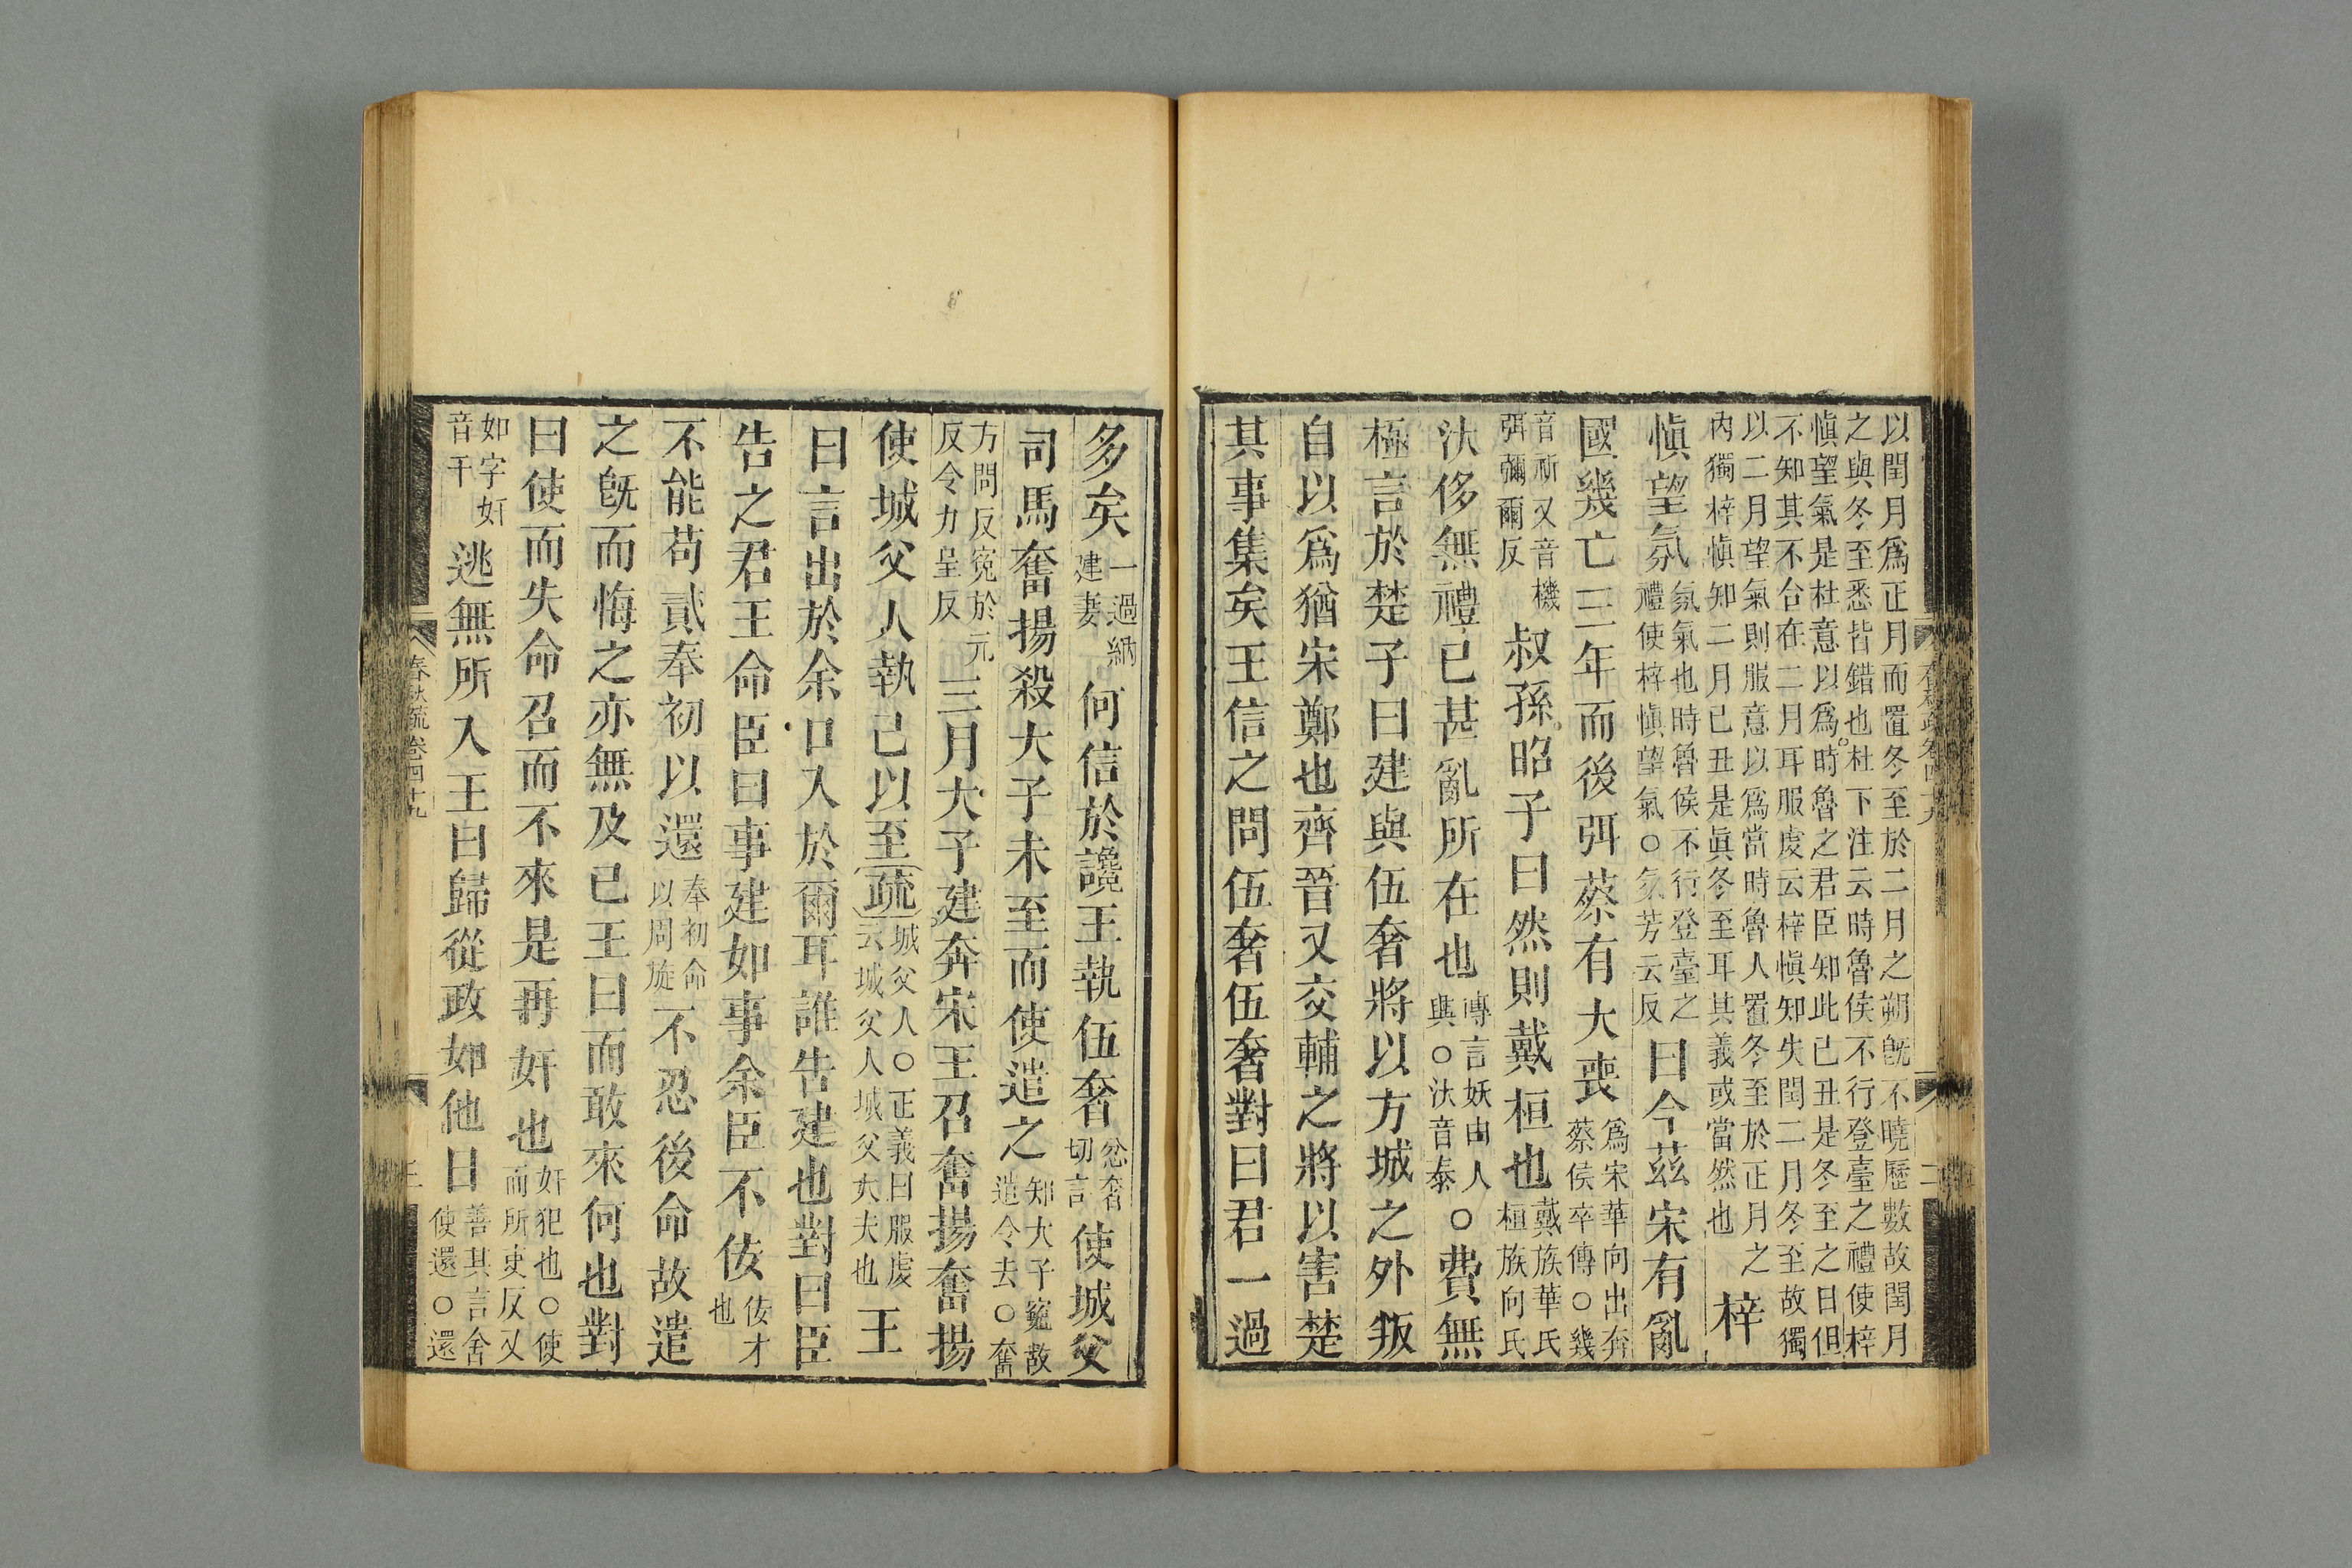 以閏月爲正月而置冬至於二月之朔旣不曉歷數故閏月
之與冬至悉皆錯也杜下注云時魯侯不行登臺之禮使梓
愼望氣是杜意以爲時魯之君臣知此己丑是冬至之日但
不知其不合在二月耳服虔云梓愼知失閏二月冬至故獨
以二月望氣則服意以爲當時魯人置冬至於正月之
內獨梓愼知二月已丑是眞冬至耳其義或當然也
梓
愼望氛
氛氣也時魯侯不行登臺之
禮使梓愼望氣○氛芳云反
曰今茲宋有亂
國幾亡三年而後弭蔡有大喪
爲宋華向出奔
蔡侯卒傳○幾
音祈又音機
弭彌爾反
叔孫昭子曰然則戴桓也
戴族華氏
桓族向氏
汰侈無禮已甚亂所在也
傳言妖由人
與○汰音泰
○費無
極言於楚子曰建與伍奢將以方城之外叛
自以爲猶宋鄭也齊晉又交輔之將以害楚
其事集矣王信之問伍奢伍奢對曰君一過
多矣
一過納
建妻
何信於讒王執伍奢
忿奢
切言
使城父
司馬奮揚殺大子未至而使遣之
知大子寃故
遣令去○奮
方問反寃於元
反令力呈反
三月大子建奔宋王召奮揚奮揚
使城父人執己以至
疏
城父人○正義曰服虔
云城父人城父大夫也
王
曰言出於余口入於爾耳誰告建也對曰臣
告之君王命臣曰事建如事余臣不佞
佞才
也
不能苟貳奉初以還
奉初命
以周旋
不忍後命故遣
之旣而悔之亦無及已王曰而敢來何也對
曰使而失命召而不來是再奸也
奸犯也○使
而所吏反又
如字奸
音干
逃無所入王曰歸從政如他日
善其言舍
使還○還
春秋疏卷四十九